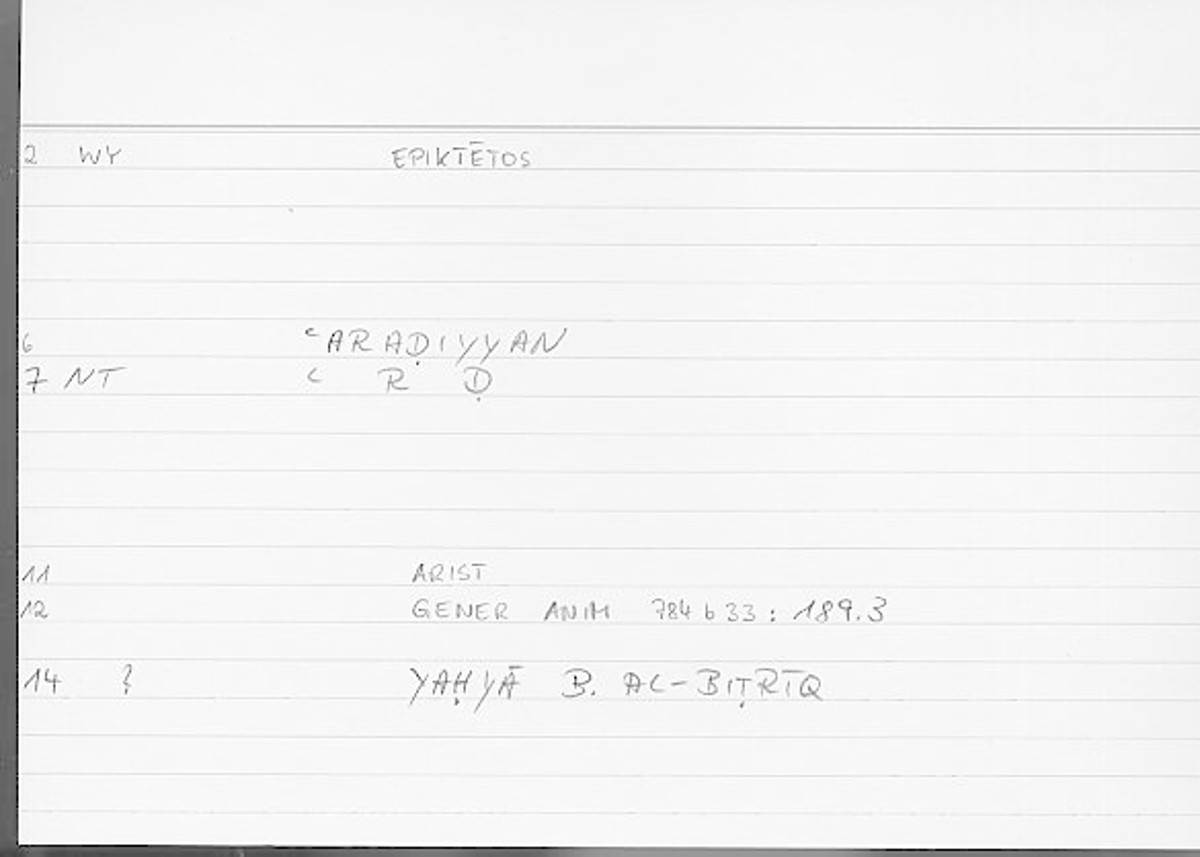 2 WY EPIKTĒTOS
6 ʿARAḌIYYAN
7 NT ʿ R Ḍ
11 ARIST
12 GENER ANIM 784 b 33 : 189.3
14 ? YAḤYĀ B. AL-BIṬRĪQ